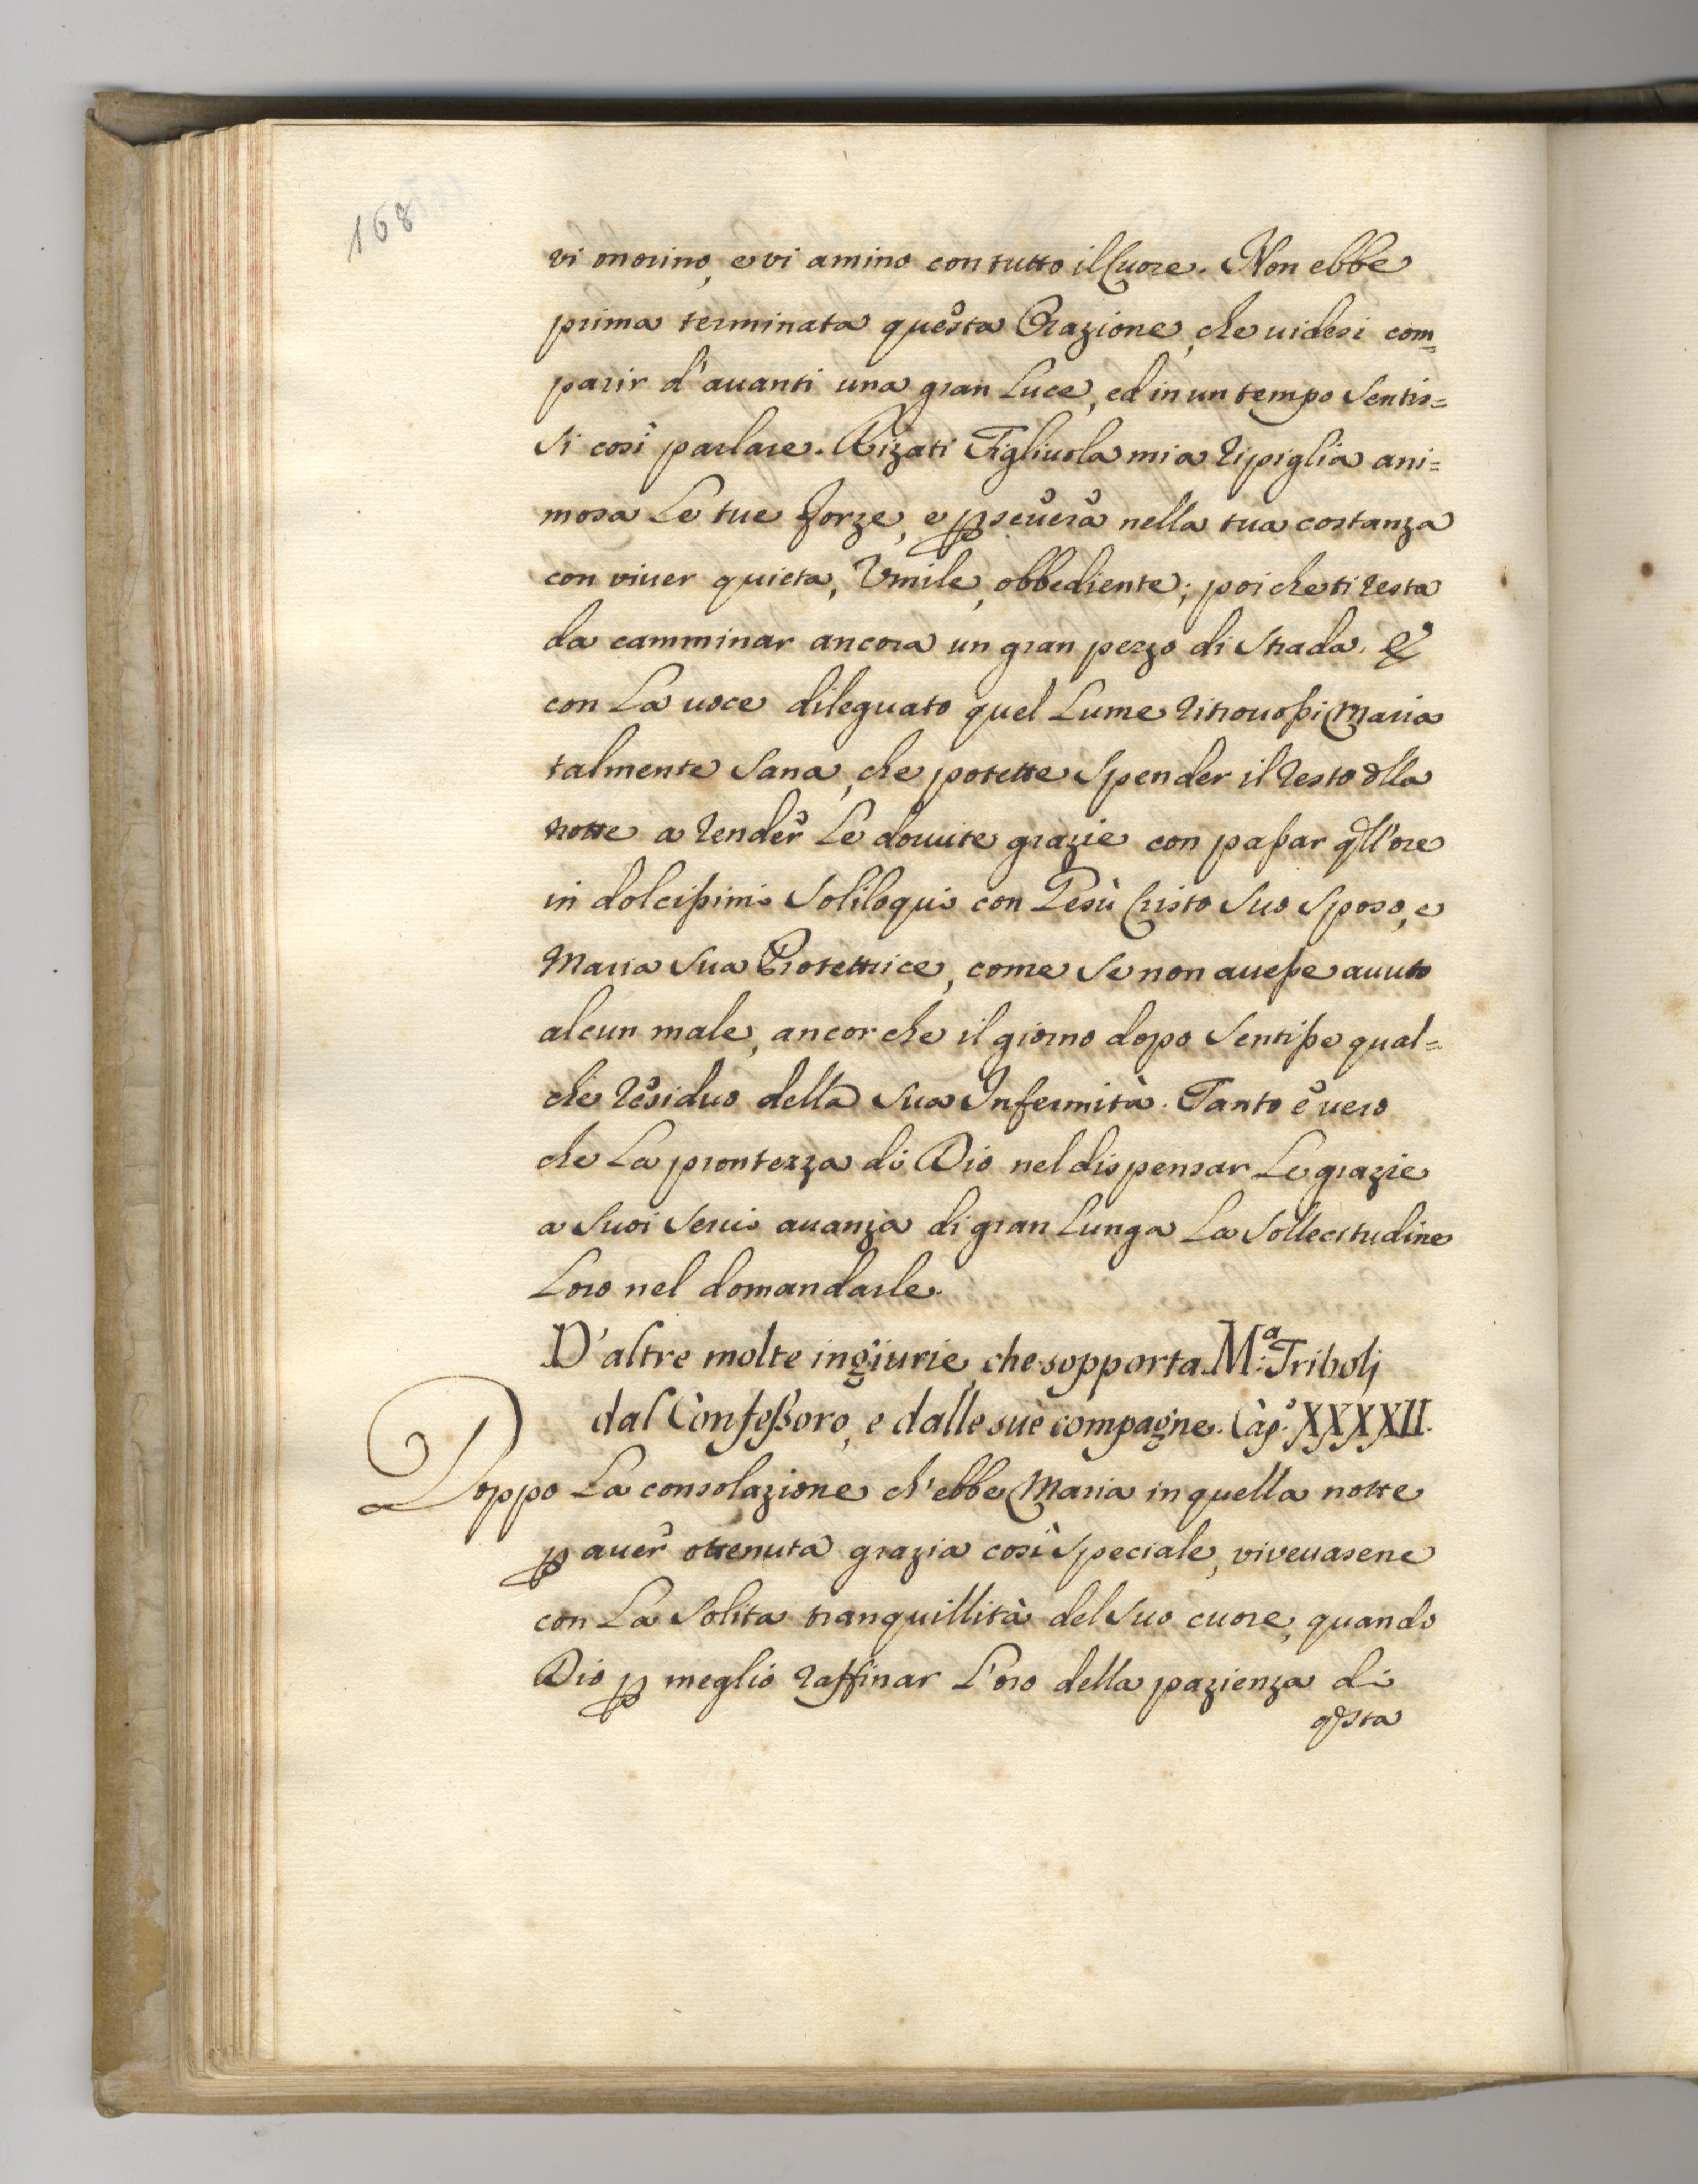 168
vi onorino, e vi amino con tutto il Cuore. Non ebbe
prima terminata questa Orazione, che videsi com=
parir d'auanti una gran Luce, ed in un tempo Sentis=
si così parlare. Rizati Figliuola mia ripiglia ani=
mosa Le tue forze, e ꝑseuera nella tua costanza
con viuer quieta, Vmile, obbediente; poiche ti resta
da camminar ancora un gran pezzo di Strada. E
con La uoce dileguato quel Lume ritrouossi Maria
talmente Sana, che potette Spender il resto dlla
notte a render Le douute grazie con passar qll'ore
in dolcissimi Soliloqui con Gesù Cristo Suo Sposo, e
Maria Sua Protettrice, come Se non auesse auuto
alcun male, ancor che il giorno dopo Sentisse qual=
che residuo della Sua Infermità. Tanto è uero
che La prontezza di Dio nel dispensar Le grazie
a Suoi Serui auanza di gran Lunga La Sollecitudine
Loro nel domandarle.
D'altre molte ingiurie, che sopporta M.ª Tribolj
dal Confessoro, e dalle sue compagne. Cap.º XXXXII.
Doppo La consolazione ch'ebbe Maria in quella notte
ꝑ auer ottenuta grazia così Speciale, viveuasene
con La Solita tranquillità del Suo cuore, quando
Dio ꝑ meglio raffinar L'oro della pazienza di
qsta